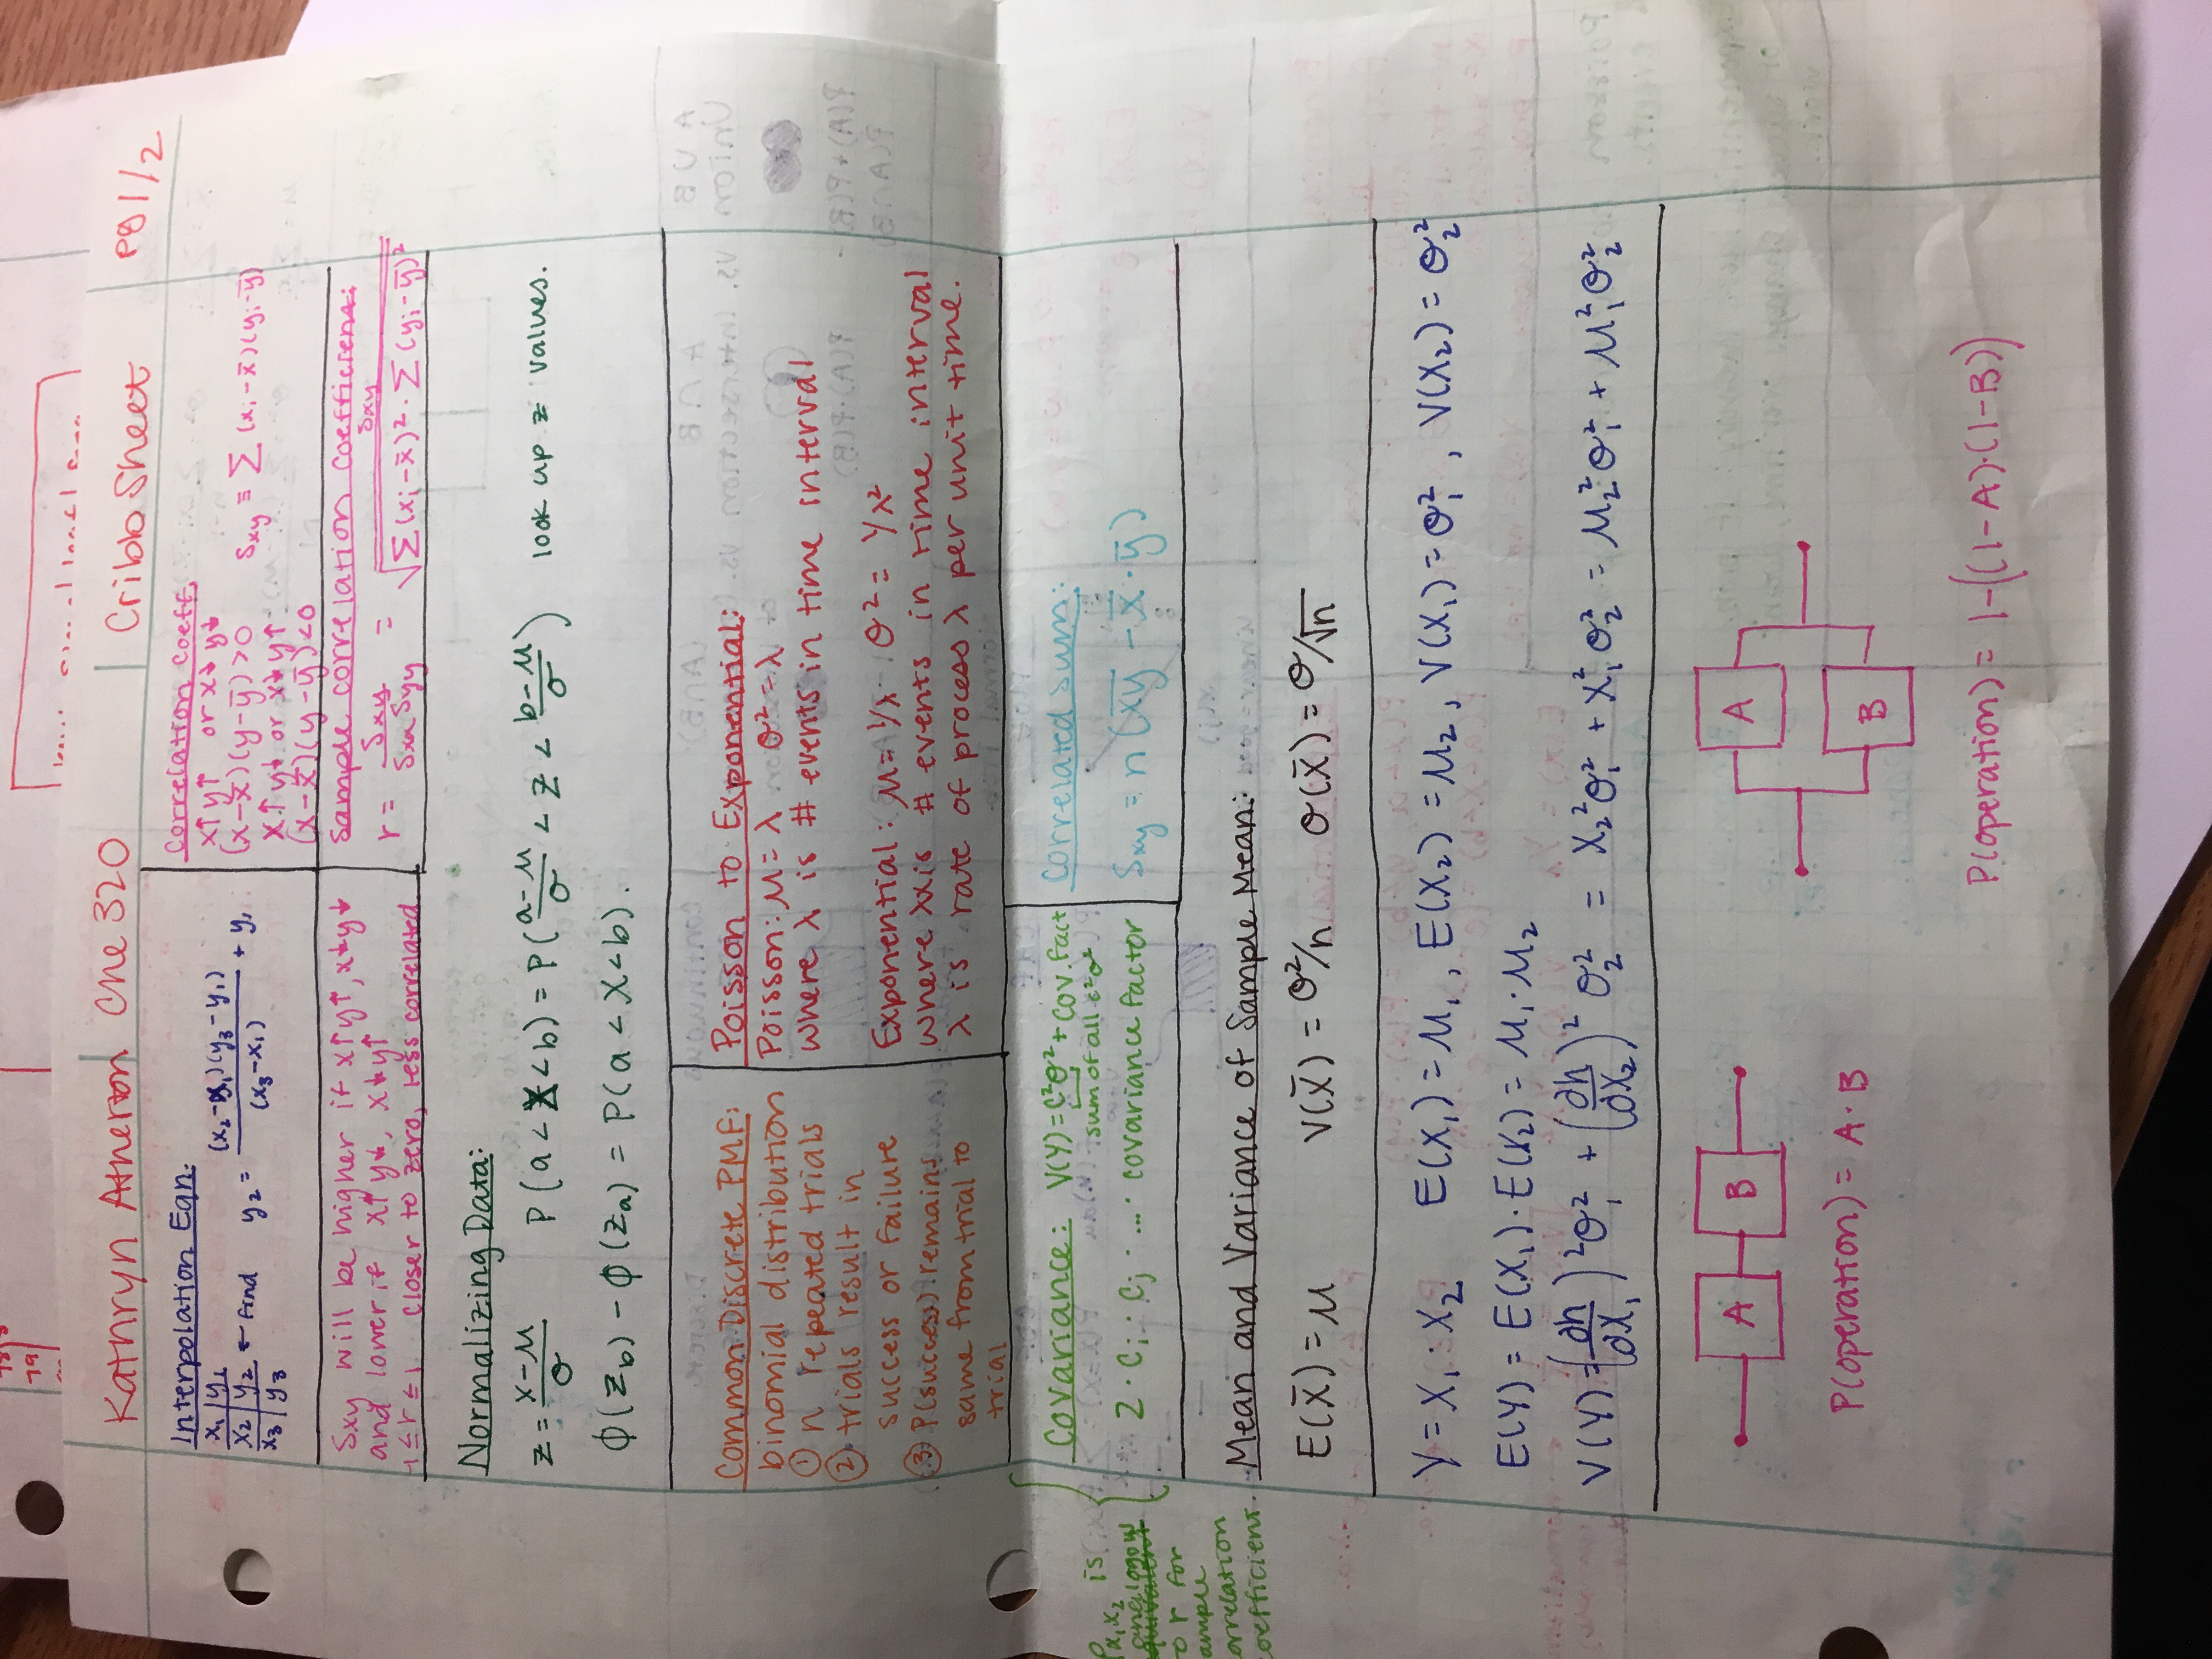 79
Kathryn Atherton Che 320 Cribb Sheet pg 1/2
Interpolation Eqn.
x₁ | y₁
x₂ | y₂ ← find y₂ = (x₂-x₁)(y₃-y₁)/(x₃-x₁) + y₁
x₃ | y₃
Correlation Coeff.
x↑ y↑ or x↓ y↓
(x-x̄)(y-ȳ) >0 Sxy ≡ Σ (xᵢ-x̄)(yᵢ-ȳ)
x↑ y↓ or x↓ y↑
(x-x̄)(y-ȳ)<0
Sxy will be higher if x↑y↑, x↓y↓
and lower if x↑ y↓, x↓y↑
-1 ≤ r ≤ 1 closer to zero, less correlated
Sample correlation coefficient:
r = Sxy/SxxSyy = Sxy/√Σ(xᵢ-x̄)²·Σ(yᵢ-ȳ)²
Normalizing Data:
z = x-μ/σ P(a < X < b) = P(a-μ/σ < z < b-μ/σ) look up z values.
Φ(z_b) - Φ(z_a) = P(a < X < b).
Common Discrete PMF:
binomial distribution
① n repeated trials
② trials result in
success or failure
③ P(success) remains
same from trial to
trial
Poisson to Exponential:
Poisson: μ = λ σ² = λ
where λ is # events in time interval
Exponential: μ = 1/λ σ² = 1/λ²
where λx is # events in time interval
λ is rate of process λ per unit time.
Covariance: V(Y) = c²σ² + cov. fact
sum of all c²σ²
2 · cᵢ · cⱼ · ... · covariance factor
ρx₁x₂ is
analogous
equivalent
to r for
sample
correlation
coefficient.
Correlated Sum:
Sxy = n(x̄ȳ - x̄ · ȳ)
Mean and Variance of Sample Mean:
E(X̄) = μ V(X̄) = σ²/n σ(X̄) = σ/√n
Y = X₁ · X₂ E(X₁) = μ₁, E(X₂) = μ₂, V(X₁) = σ₁², V(X₂) = σ₂²
E(Y) = E(X₁)·E(X₂) = μ₁·μ₂
V(Y) = (∂h/∂X₁)²σ₁² + (∂h/∂X₂)² σ₂² = X₂²σ₁² + X₁²σ₂² = μ₂²σ₁² + μ₁²σ₂²
A B
A
B
P(operation) = A · B
P(operation) = 1-((1-A)·(1-B))